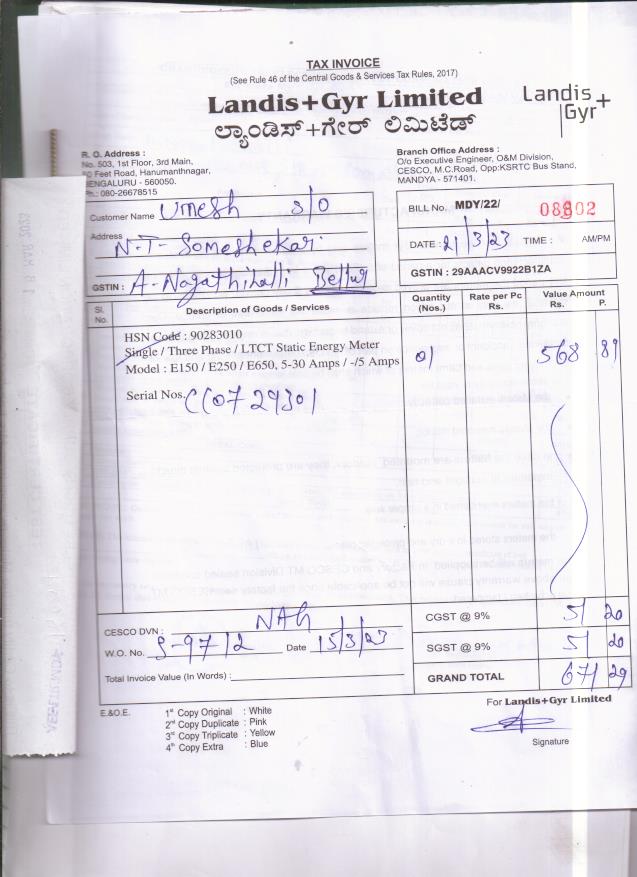 TAX INVOICE
(See Rule 46 of the Central Goods & Services Tax Rules, 2017)
Landis+Gyr Limited
ಲ್ಯಾಂಡಿಸ್+ಗೇರ್ ಲಿಮಿಟೆಡ್
Landis+
Gyr
R. O. Address :
No. 503, 1st Floor, 3rd Main,
Feet Road, Hanumanthnagar,
BENGALURU - 560050.
Ph.: 080-26678515
Branch Office Address :
O/o Executive Engineer, O&M Division,
CESCO, M.C.Road, Opp:KSRTC Bus Stand,
MANDYA - 571401.
Customer Name Umesh S/O
Address N.T- Someshekar
GSTIN : A-Nagathihalli Bellur
BILL No. MDY/22/
DATE : 21/3/23 TIME : AM/PM
GSTIN : 29AAACV9922B1ZA
Sl. No. Description of Goods / Services Quantity (Nos.) Rate per Pc Rs. Value Amount Rs. P.
HSN Code : 90283010
Single / Three Phase / LTCT Static Energy Meter
Model : E150 / E250 / E650, 5-30 Amps / -/5 Amps 01 568 89
Serial Nos. CC0724301
CESCO DVN : NAG
CGST @ 9% 51 20
W.O. No. S-97/2 Date 15/3/23
SGST @ 9% 51 20
Total Invoice Value (In Words) :
GRAND TOTAL 671 29
E.&O.E. 1st Copy Original : White
2nd Copy Duplicate : Pink
3rd Copy Triplicate : Yellow
4th Copy Extra : Blue
For Landis+Gyr Limited
Signature